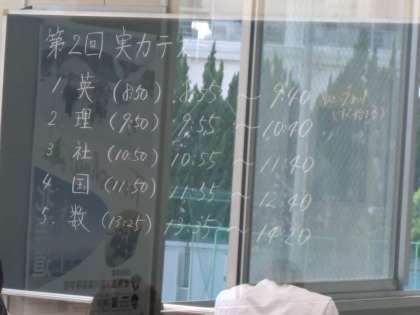 第2回 実力テスト
1 英 (8:50) 8:55 ～ 9:40
2 理 (9:50) 9:55 ～ 10:40
3 社 (10:50) 10:55 ～ 11:40
4 国 (11:50) 11:55 ～ 12:40
5. 数 (13:25) 13:35 ～ 14:20